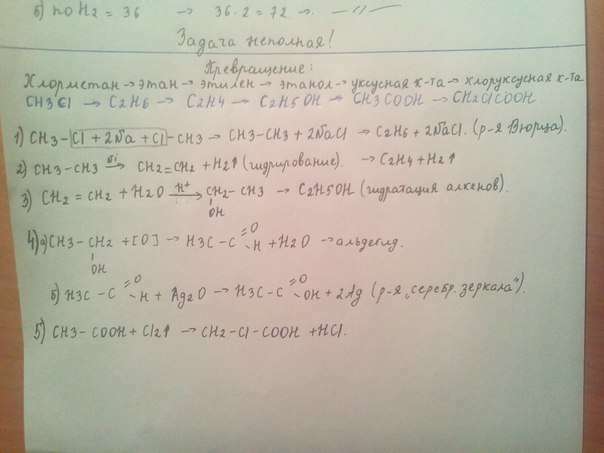 б) по H2 = 36 → 36·2 = 72
Задача неполная!
Превращение:
Хлорметан → этан → этилен → этанол → уксусная к-та → хлоруксусная к-та
CH3Cl → C2H6 → C2H4 → C2H5OH → CH3COOH → CH2ClCOOH
1) CH3-Cl + 2Na + Cl-CH3 → CH3-CH3 + 2NaCl → C2H6 + 2NaCl. (р-я Вюрца).
2) CH3-CH3 → CH2=CH2 + H2↑ (гидрирование). → C2H4 + H2↑
3) CH2=CH2 + H2O —H+→ CH2-CH3 → C2H5OH (гидратация алкенов).
OH
4) а) CH3-CH2 + [O] → H3C-C=O H + H2O → альдегид.
OH
б) H3C-C=O H + Ag2O → H3C-C=O OH + 2Ag (р-я „серебр. зеркала").
5) CH3-COOH + Cl2↑ → CH2-Cl-COOH + HCl.